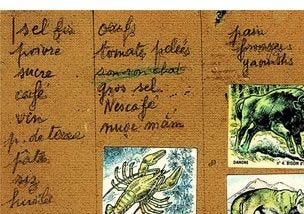 1 sel fin
poivre
sucre
café
vin
p. de terre
pâte
riz
huile
oeufs
tomates pelées
gros sel
Nescafé
pain
fromages
yaourths
DANONE
N° 4. BISON D'